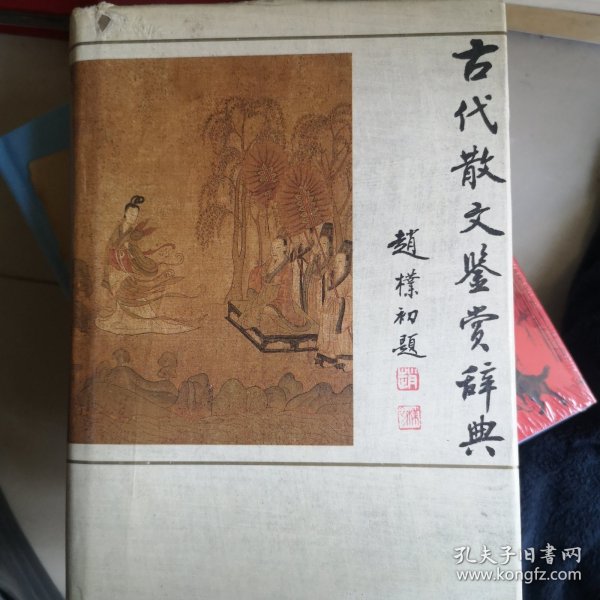 古代散文鉴赏辞典
趙樸初題
孔夫子旧書网
www.kongfz.com